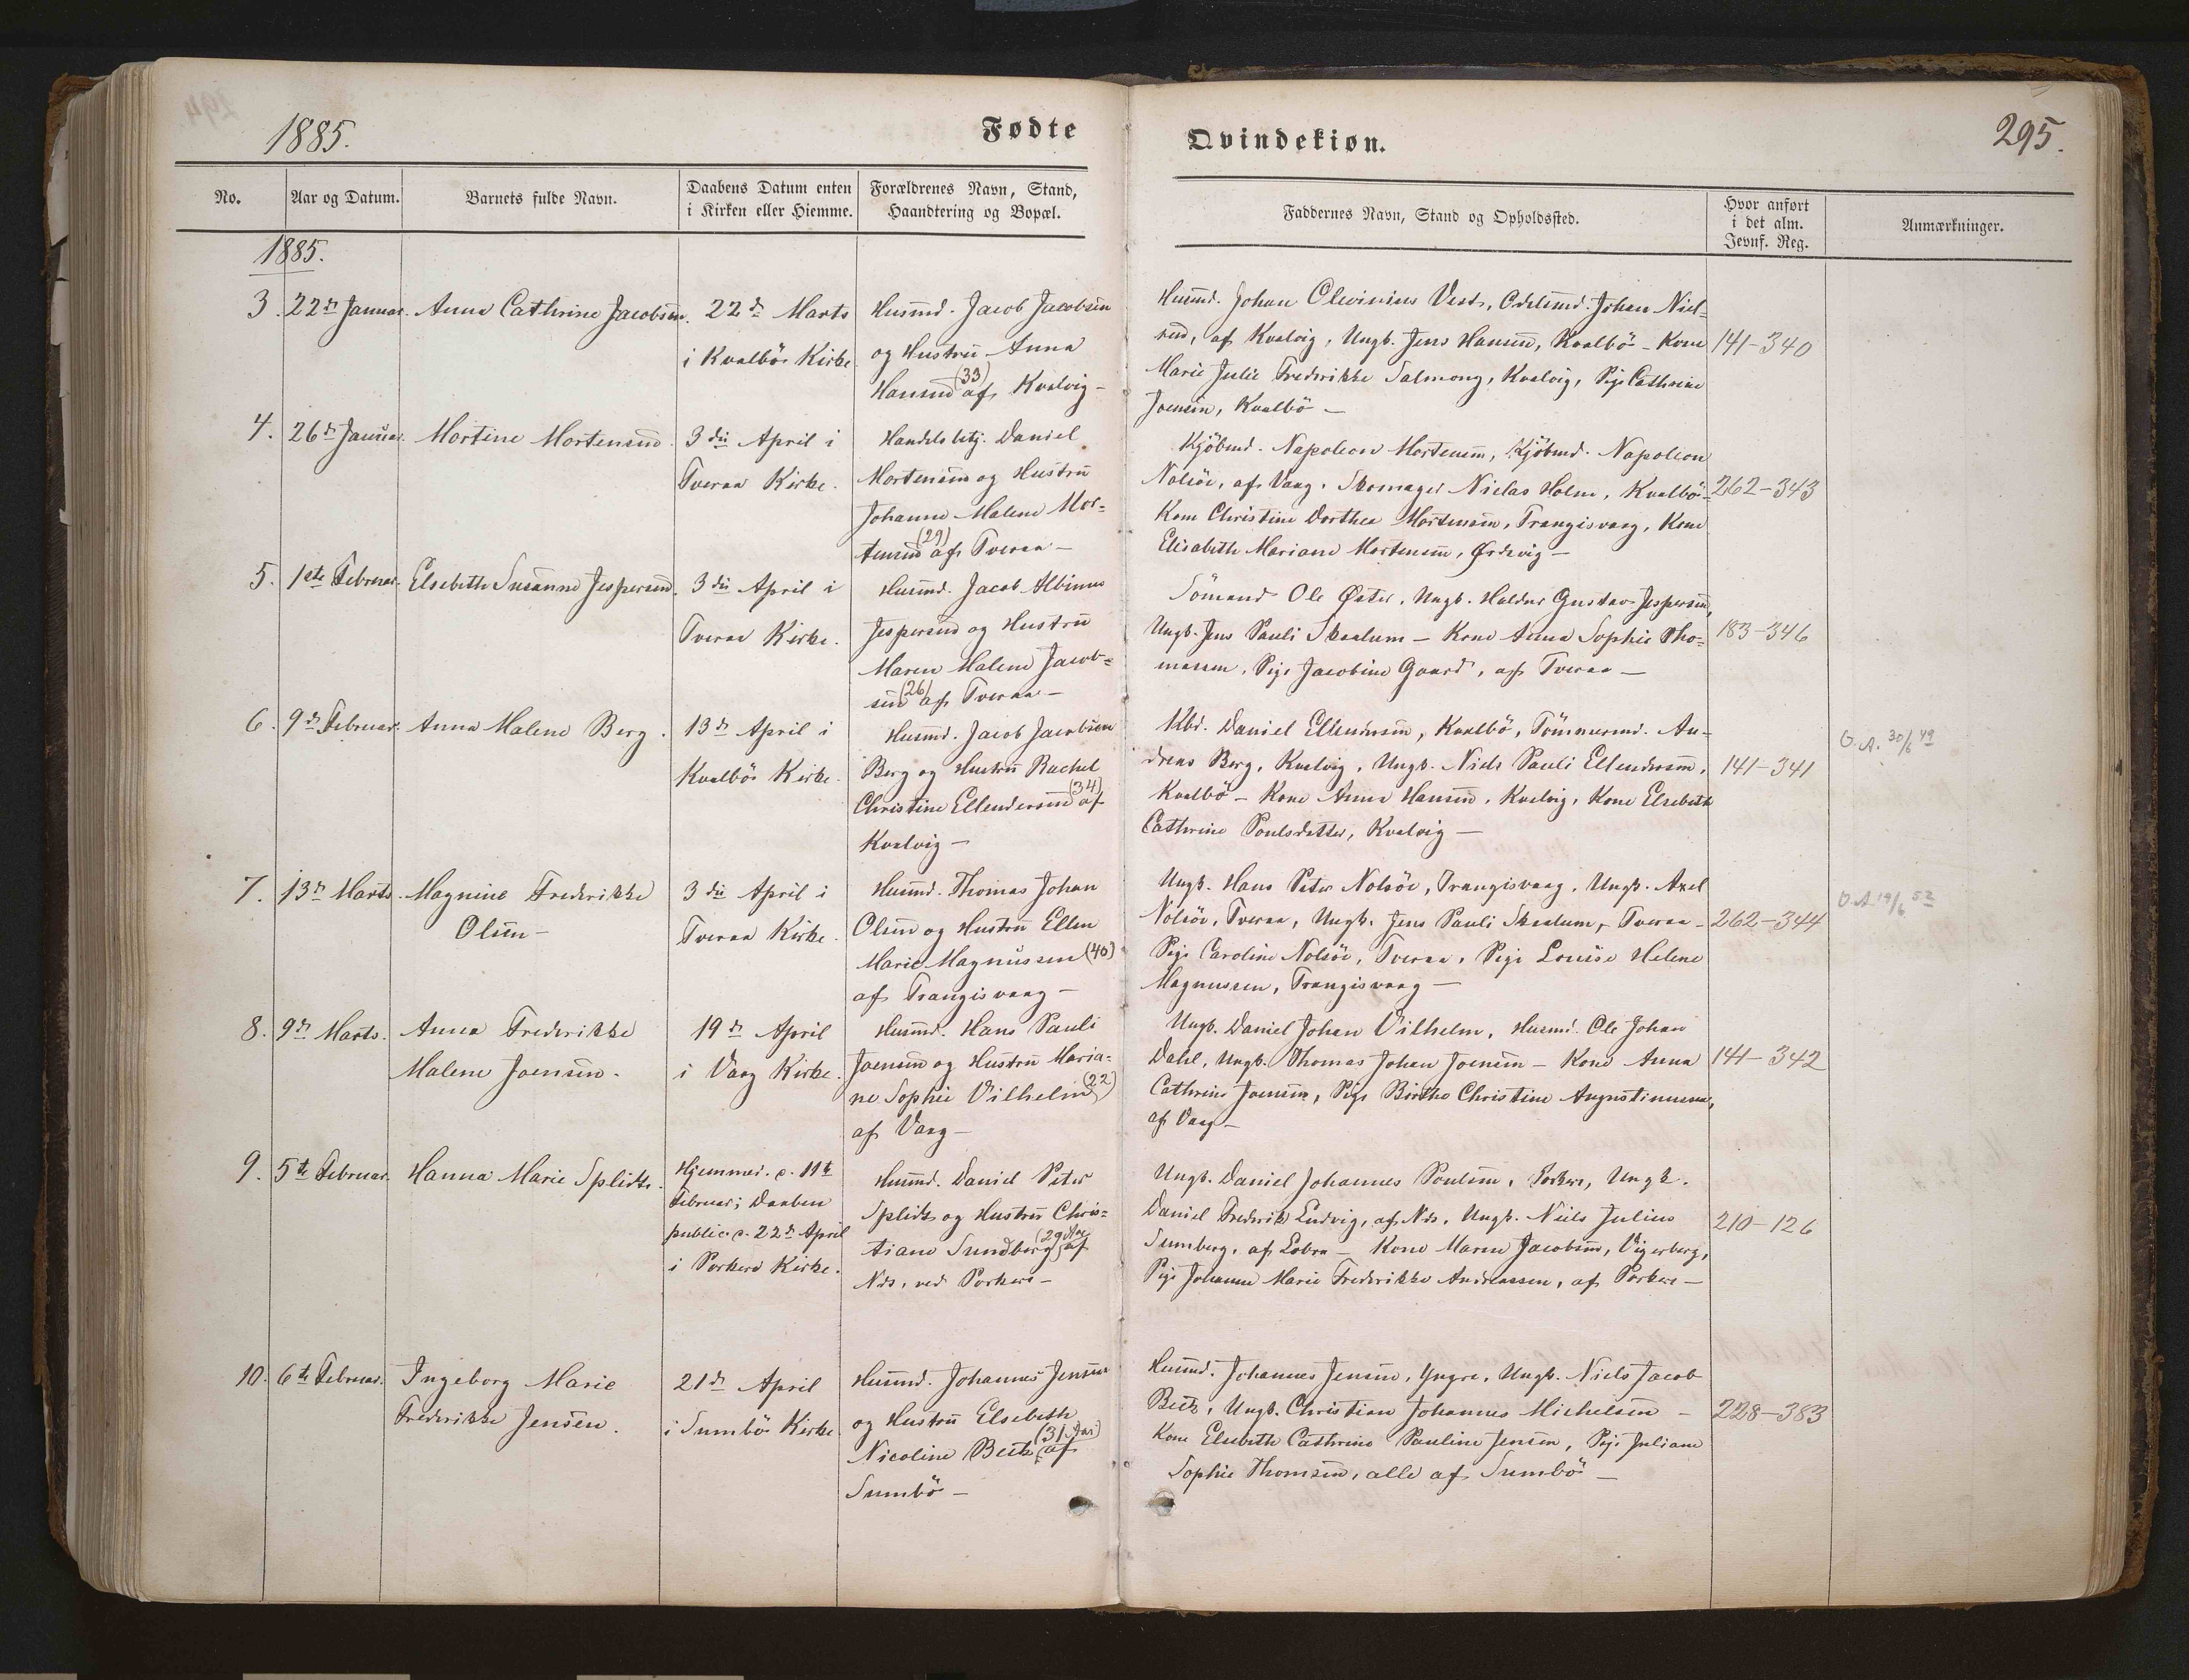 1885.
Fødte
Qvindekiøn.
295.
No.
Aar og Datum.
Barnets fulde Navn.
Daabens Datum enten
i Kirken eller Hiemme.
Forældrenes Navn, Stand,
Haandtering og Bopæl.
Faddernes Navn, Stand og Opholdssted.
Hvor anført
i det alm.
Jevnf. Reg.
Anmærkninger.
1885.
3.
22de Januar.
Anna Cathrine Jacobsen.
22de Marts
i Kvalbö Kirke
Husmd. Jacob Jacobsen
og Hustru Anna
Hansen (33) af Kvalvig –
Husmd. Johan Olevinius Vest, Odelsmd. Johan Niel-
sen, af Kvalvig, Ungk. Jens Hansen, Kvalbö – Kone
Marie Julie Frederikke Salmong, Kvalvig, Pige Cathrine
Joensen, Kvalbö –
141–340
4.
26de Januar.
Mortine Mortensen.
3die April i
Tveraa Kirke.
Handelsbetj. Daniel
Mortensen og Hustru
Johanne Malene Mor-
tensen (29) af Tveraa –
Kjöbmd. Napoleon Mortensen, Kjöbmd. Napoleon
Nolsöe, af Vaag, Skomager Niclas Holm, Kvalbö –
Kone Christine Dorthea Mortensen, Trangisvaag, Kone
Elisabeth Mariane Mortensen, Ørdevig –
262–343
5.
1ste Februar.
Elsebeth Susanne Jespersen.
3die April i
Tveraa Kirke.
Husmd. Jacob Albinus
Jespersen og Hustru
Maren Malene Jacob-
sen (26) af Tveraa –
Sömand Ole Öster, Ungk. Haldur Gustav Jespersen,
Ungk. Jens Pauli Skaalum – Kone Anna Sophie Tho-
massen, Pige Jacobine Gaard, af Tveraa –
183–346
6.
9de Februar.
Anna Malene Berg.
13de April i
Kvalbö Kirke.
Husmd. Jacob Jacobsen
Berg og Hustru Rachel
Christine Ellendersen (34) af
Kvalvig –
Kbd. Daniel Ellendersen, Kvalbö, Tömmermd. An-
dreas Berg, Kvalvig, Ungk. Niels Pauli Ellendersen,
Kvalbö – Kone Anna Hansen, Kvalvig, Kone Elsebeth
Cathrine Poulsdatter, Kvalvig –
141–341
O.A. 30/6 49
7.
13de Marts.
Magnine Frederikke
Olsen –
3die April i
Tveraa Kirke.
Husmd. Thomas Johan
Olsen og Hustru Ellen
Marie Magnussen (40)
af Trangisvaag –
Ungk. Hans Peter Nolsöe, Trangisvaag, Ungk. Axel
Nolsöe, Tveraa, Ungk. Jens Pauli Skaalum, Tveraa –
Pige Caroline Nolsöe, Tveraa, Pige Louise Helene
Magnussen, Trangisvaag –
262–344
O.A. 19/6 52
8.
9de Marts.
Anna Frederikke
Malene Joensen.
19de April
i Vaag Kirke.
Husmd. Hans Pauli
Joensen og Hustru Maria-
ne Sophie Vilhelm (22)
af Vaag –
Ungk. Daniel Johan Vilhelm, Husmd. Ole Johan
Dahl, Ungk. Thomas Johan Joensen – Kone Anna
Cathrine Joensen, Pige Birthe Christine Augustinussen,
af Vaag –
141–342
9.
5te Februar.
Hanna Marie Splidt.
Hjemmed. d. 11te
Februar; Daaben
public. d. 22de April
i Porkeri Kirke.
Husmd. Daniel Peter
Splidt og Hustru Chris-
tiane Sundberg (29 Aar) af
Næs, ved Porkeri –
Ungk. Daniel Johannes Poulsen, Porkere, Ungk.
Daniel Frederik Ludvig, af Næs, Ungk. Niels Julius
Sumberg, af Lobra – Kone Maren Jacobsen, Vigerberg,
Pige Johanne Marie Frederikke Andreassen, af Porkere –
210–126
10.
6te Februar.
Ingeborg Marie
Frederikke Jensen.
21de April
i Sumbö Kirke
Husmd. Johannes Jensen
og Hustru Elsebeth
Nicoline Beck (31 Aar) af
Sumbö –
Husmd. Johannes Jensen, Yngre, Ungk. Niels Jacob
Beck, Ungk. Christian Johannes Michelsen –
Kone Elsebeth Cathrine Pauline Jensen, Pige Juliane
Sophie Thomsen, alle af Sumbö –
228–383